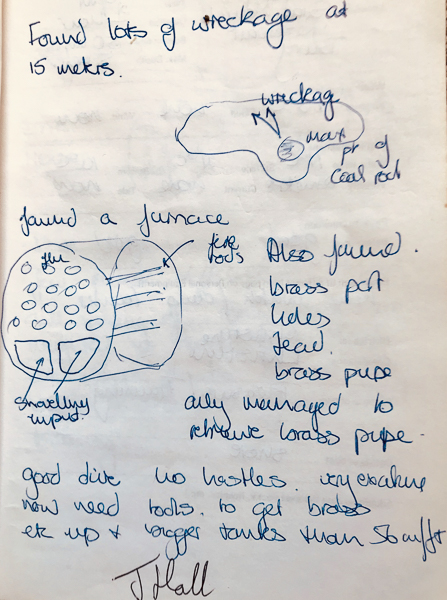 Found lots of wreckage at
15 meters.
wreckage
main
pt of
Coal rock
found a furnace
flu
fire
rods
Also found.
brass port
holes
lead.
brass pipe
only managed to
retrieve brass pipe.
good dive no hastles. very exciting
now need tools. to get brass
etc up + bigger tanks than 50 cuft
J Hall